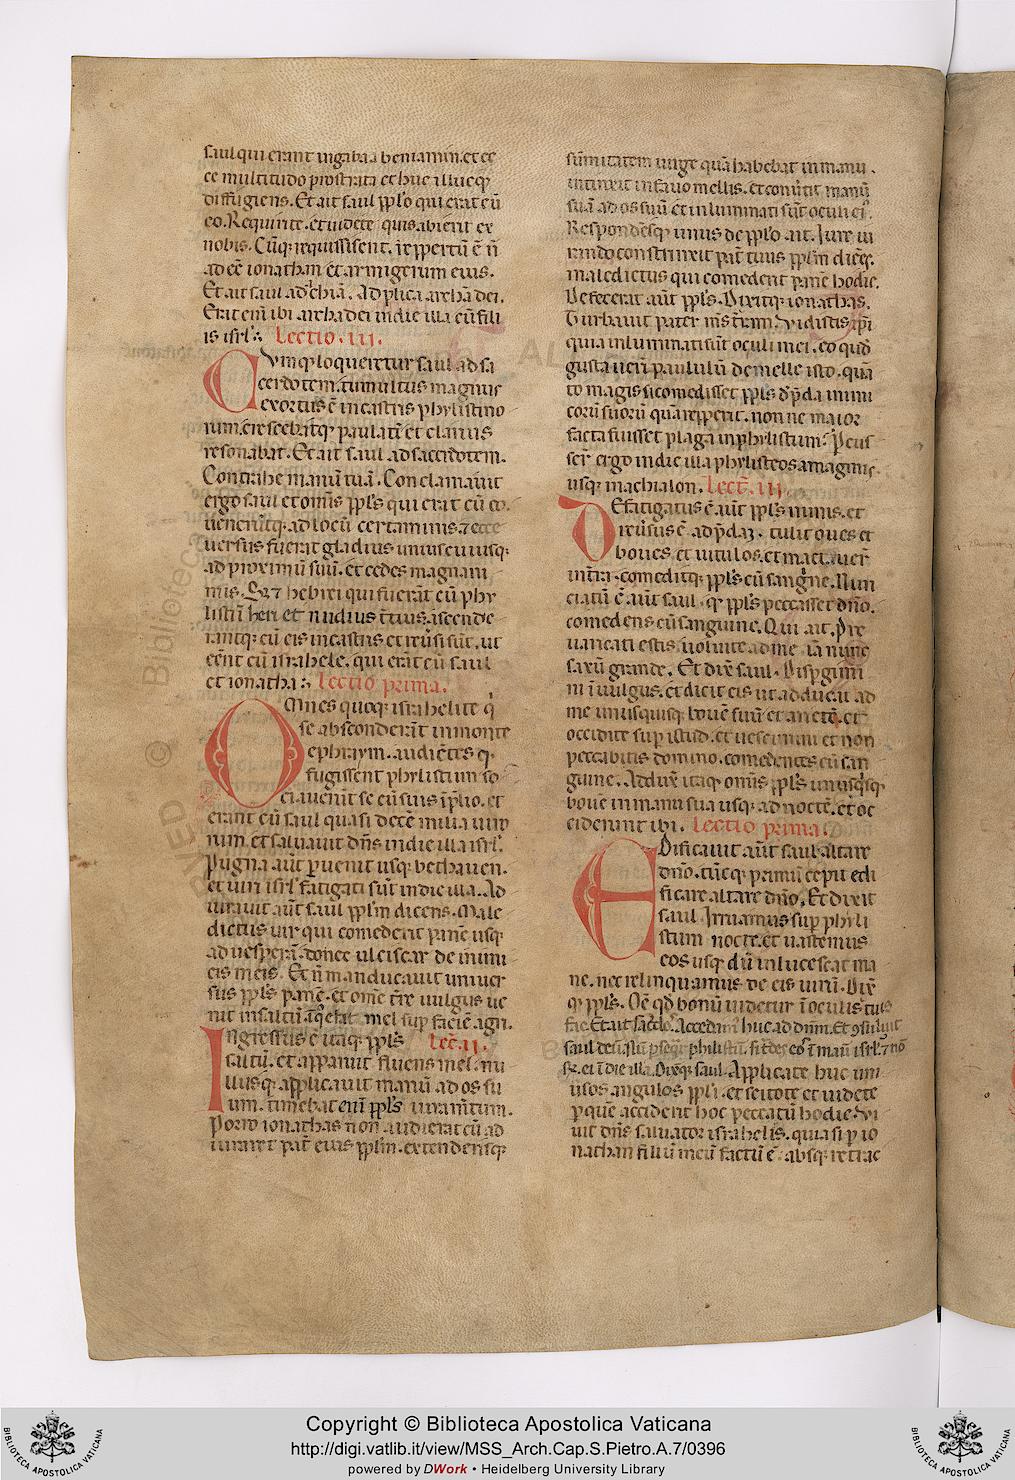 saul qui erant in gabaa beniamin. et ec
ce multitudo prostrata et huc illucq;
diffugiens. Et ait saul ppl̄o qui erat cū
eo. Requirite. et uidete quis abierit ex
nobis. Cūq; requisissent. reppertū ē n̄
adeē ionathan et armigerum eius.
Et ait saul ad echiā. Adplica archā dei.
Erat eni ibi archa dei in die illa cū fili
is isrl̄. Lectio. iii.
Cvmq; loqueretur saul ad sa
cerdotem. tumultus magnus
exortus ē in castris phylistino
rum. crescebatq; paulatī et clarius
resonabat. Et ait saul ad sacerdotem.
Contrahe manū tuā. Conclamauit
ergo saul et omīs ppl̄s qui erat cū eo.
uenerūtq; ad locū certaminis. ⁊ ecce
uersus fuerit gladius uniuscuiusq;
ad proximū suū. et cedes magna ni
mis. S; ⁊ hebrei qui fuerāt cū phy
listiī heri et nudius t̄tius. ascende
rantq; cū eis in castris et reūsi sūt. ut
eēnt cū israhele. qui erāt cū saul
et ionatha. Lectio prima.
Omnes quoq; israhelite q̇
se absconderāt in monte
ephraym. audiētes q.
fugissent phylistiim so
ciauerūt se cū suis ī p̄lio. et
erant cū saul quasi decē milia uiro
rum. et saluauit dn̄s in die illa isrl̄.
Pugna aūt puenit usq; bethauen.
et uiri isrl̄ fatigati sūt in die illa. Ad
iurauit aūt saul ppl̄m dicens. Male
dictus uir qui comederit panē usq;
ad uesperā. donec ulciscar de inimi
cis meis. Et n̄ manducauit uniuer
sus ppl̄s panē. et omē t̄re uulgus ue
nit in saltū ī q̇ erat mel sup faciē agri.
Ingressus ē itaq; ppl̄s Lec̄t. ii.
saltū. et apparuit fluens mel. nu
llusq; applicauit manū ad os su
um. timebat enī ppl̄s iuramtum.
Porro ionathas non audierat cū ad
iuraret pat̄ eius ppl̄m. extenditsq;
sūmitatem uirge quā habebat in manu.
intinxit in fauo mellis. et conūtit manū
suā ad os suū et inluminati sūt oculi ei'.
Respondēsq; unus de ppl̄o ait. Iure iu
rando constrinxit pat̄ tuus ppl̄m dicēs.
maledictus qui comederit panē hodie.
Defecerat aūt ppl̄s. Dixitq; ionathas.
Turbauit pater m̄s t̄ram. Vidistis ip̄i
quia inluminati sūt oculi mei. eo quod
gustauerū paululū de melle isto. quā
to magis si comedisset ppl̄s d̄ p̄da inimi
corū suorū quā repperit. nonne maior
facta fuisset plaga in phylistiim. Percus
ser̄ ergo in die illa phylisteos a magmis
usq; in achialon. Lect̄. iii.
Defatigatus ē aūt ppl̄s nimis. et
reūsus ē ad p̄daꝫ. tulit oues et
boues. et uitulos. et mactauer̄
int̄ra. comeditq; ppl̄s cū sangīne. Nun
ciatū ē aūt saul. q ppl̄s peccasset dn̄o.
comedens cū sanguine. Qui ait. Pre
uaricati estis. uoluite ad me iā nunc
saxū grande. Et dix̄ saul. Dispgimi
ni ī uulgus. et dicit eis ut adducat ad
me unusquisq; bouē suū et arietē. et
occidite sup istud. et uescimini et non
peccabitis domino. comedentes cū san
guine. Adduxt̄ itaq; omīs ppl̄s unusq̇sq;
bouē in manu sua usq; ad noctē. et oc
ciderunt ibi. Lectio prima.
Edificauit aūt saul altare
dn̄o. tūcq; primū cepit edi
ficare altare dn̄o. Et dixit
saul. Irruamus sup phyli
stiim nocte. et uastemus
eos usq; dū inlucescat ma
ne. nec relinquamus de eis uirū. Dix̄
q; ppl̄s. Oē qd̄ bonū uidetur ī oculis tuis
fac. Et ait sac̄dos. Accedam' huc ad dn̄m. Et ꝯsuluit
saul deū. sū p̄seq̄r philistiī. si t̄des eos ī manū isrl̄. ⁊ nō
r̄. ei ī die illa. Dixq; saul. Applicate huc uni
uisos angulos ppl̄i. et scitote et uidete
p̄ que acciderit hoc peccatū hodie. Vi
uit dn̄s saluator israhelis. quia si p io
nathan filiū meū factū ē. absq; retrac
Copyright © Biblioteca Apostolica Vaticana
http://digi.vatlib.it/view/MSS_Arch.Cap.S.Pietro.A.7/0396
powered by DWork • Heidelberg University Library
BIBLIOTECA APOSTOLICA VATICANA
BIBLIOTECA APOSTOLICA VATICANA